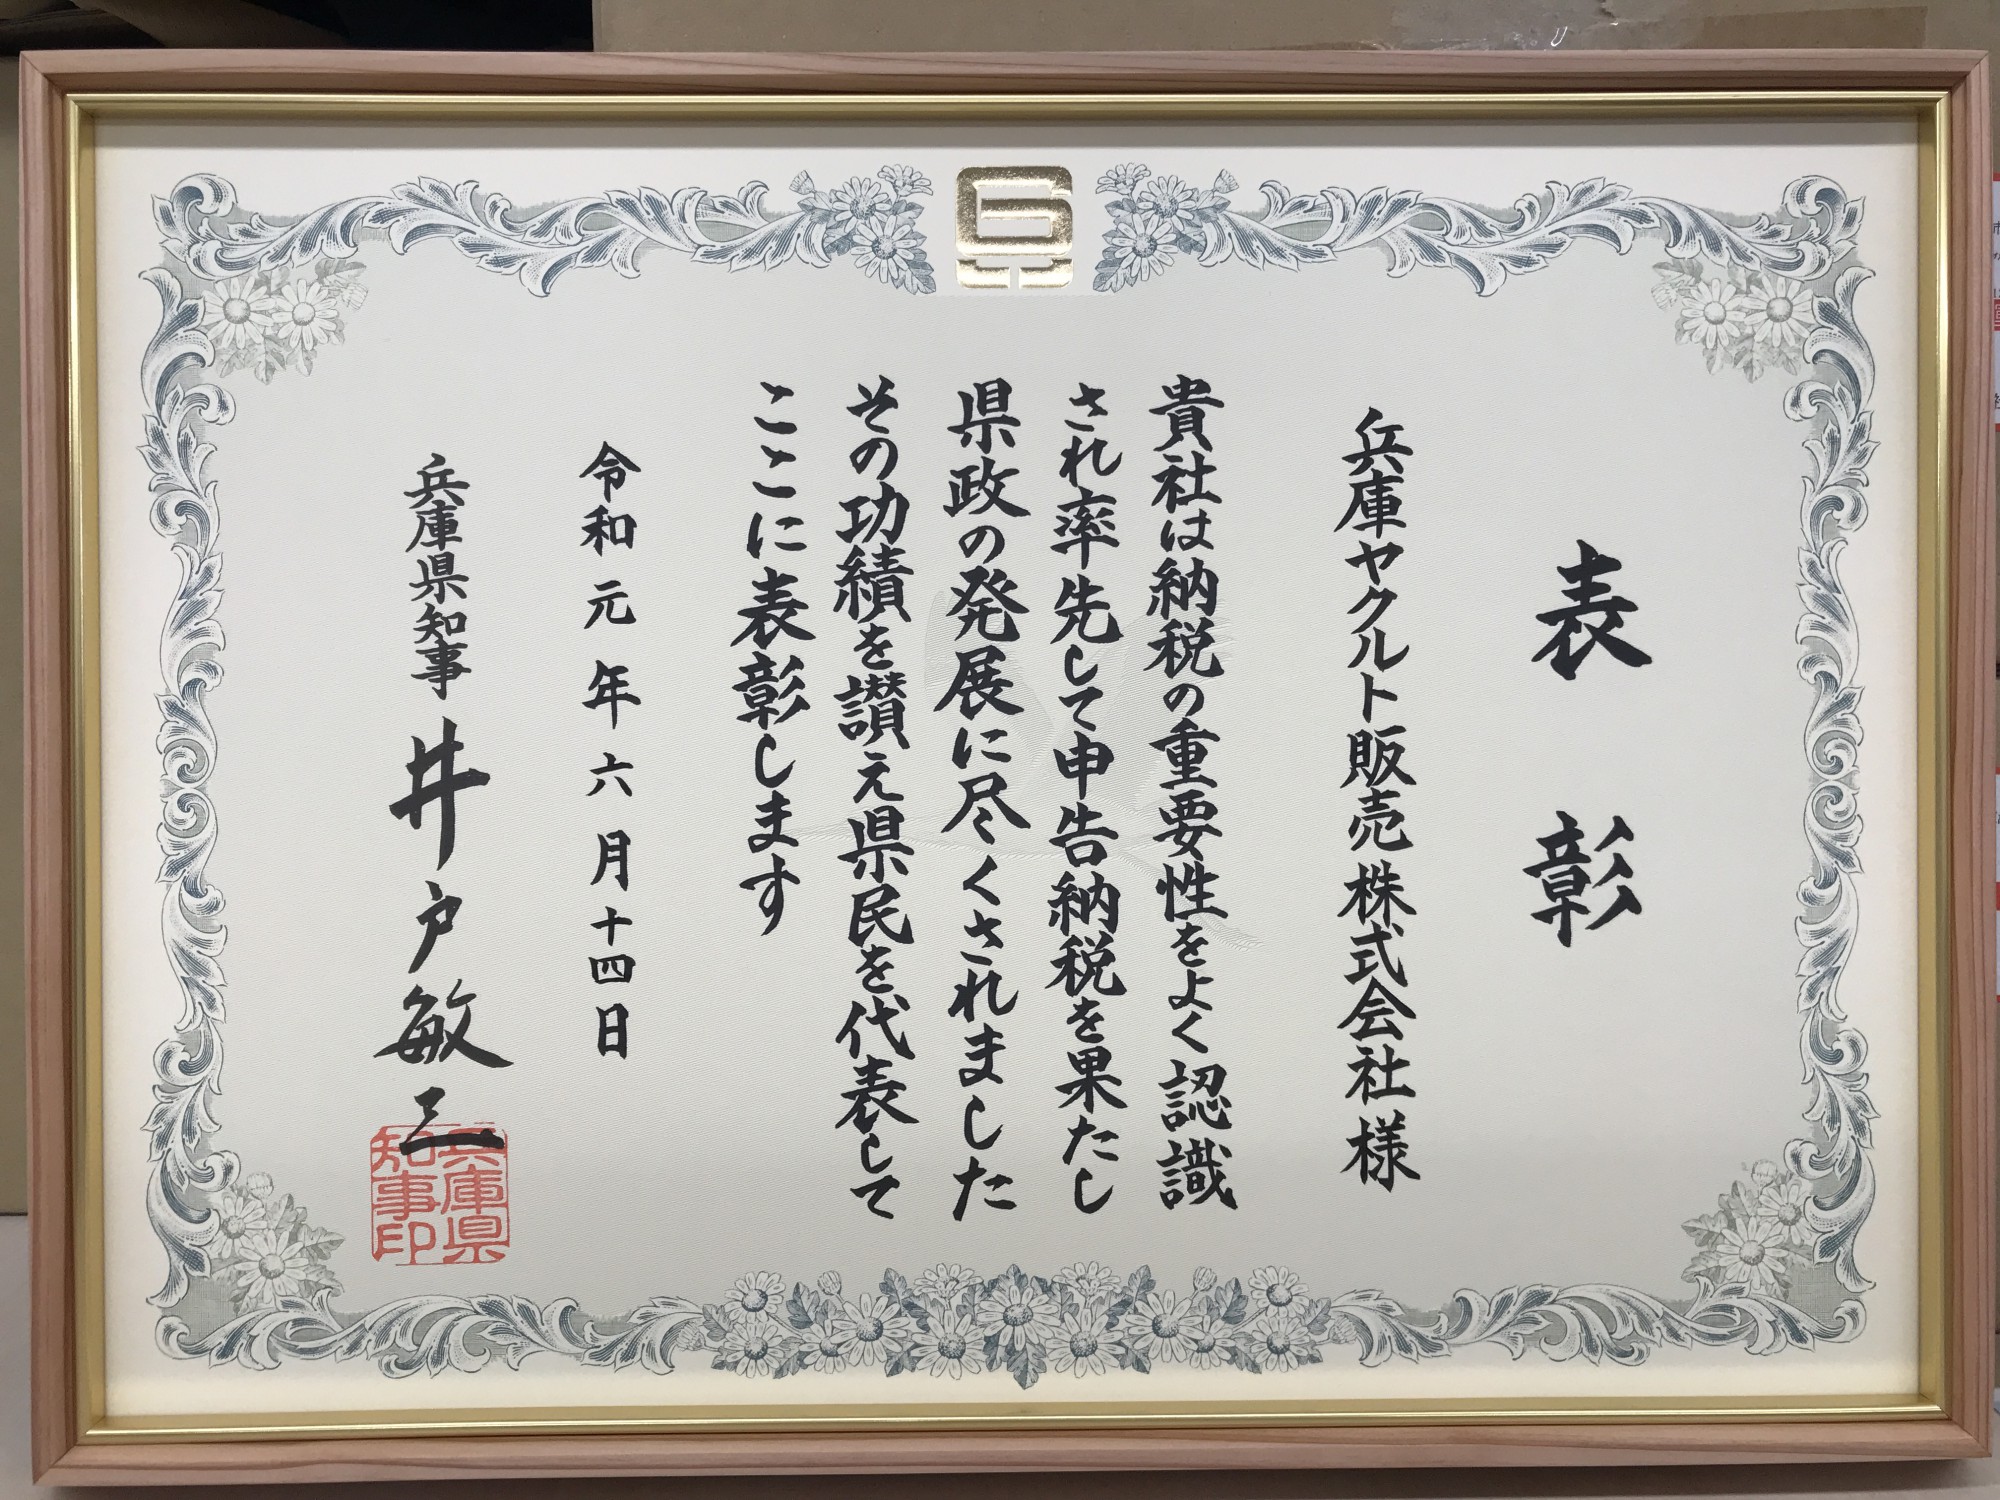 表彰
兵庫ヤクルト販売株式会社様
貴社は納税の重要性をよく認識
され率先して申告納税を果たし
県政の発展に尽くされました
その功績を讃え県民を代表して
ここに表彰します
令和元年六月十四日
兵庫県知事 井戸敏三
兵庫県
知事印